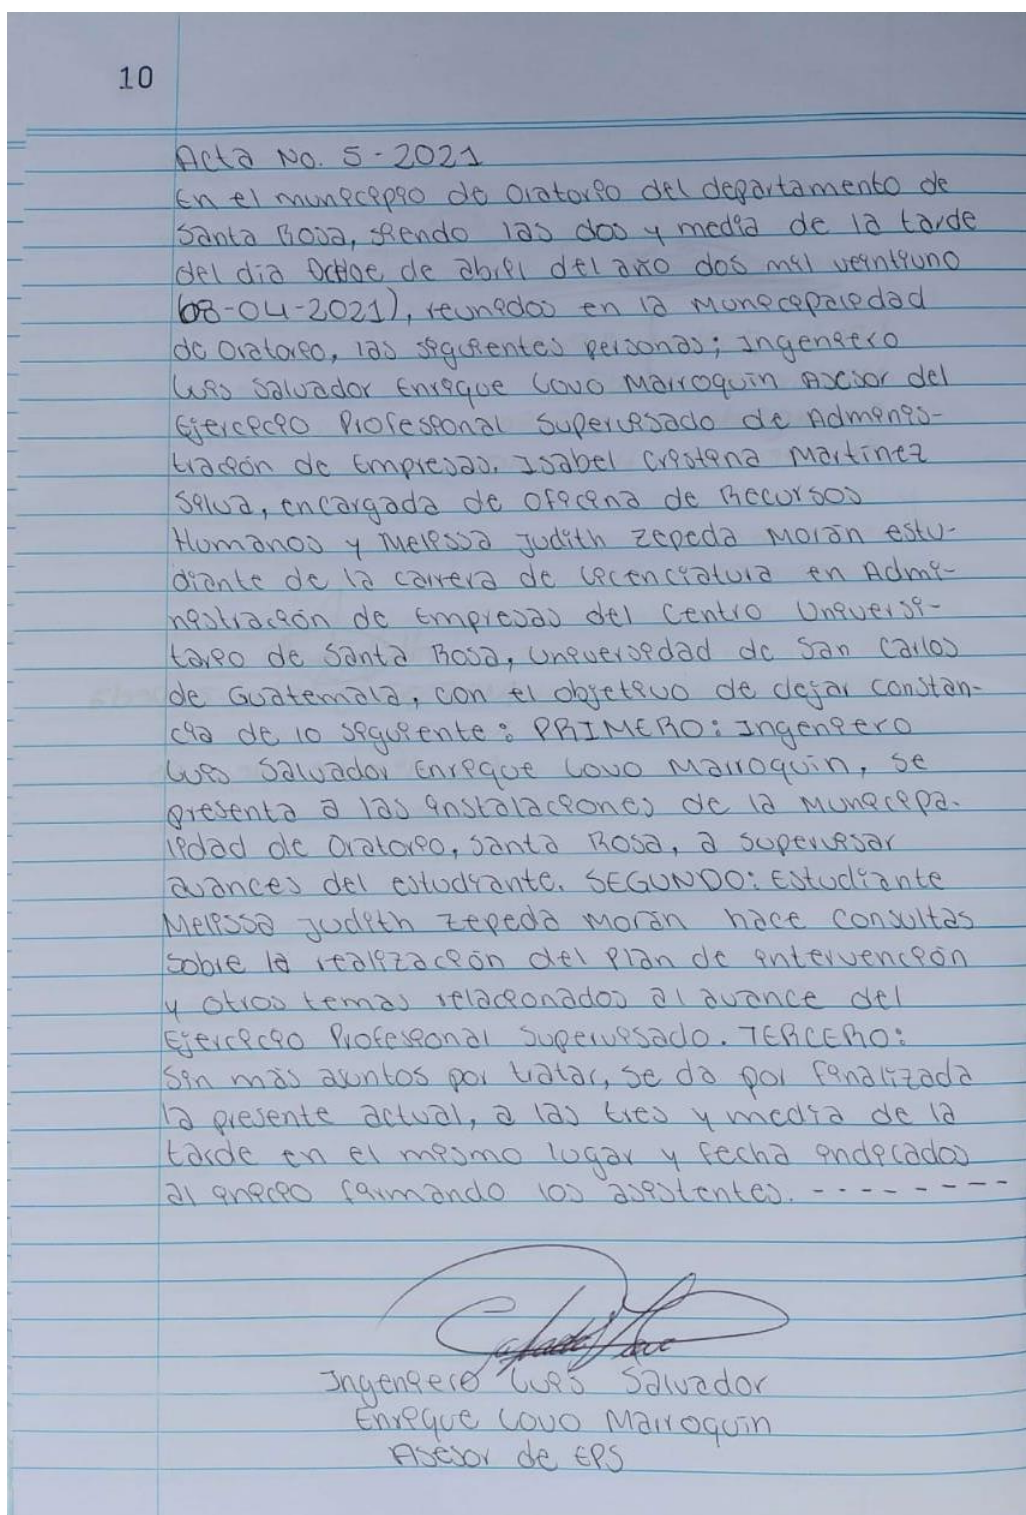 10
Acta No. 5-2021
En el municipio de Oratorio del departamento de
Santa Rosa, siendo las dos y media de la tarde
del día de abril del año dos mil veintiuno
(08-04-2021), reunidos en la Municipalidad
de Oratorio, las siguientes personas; Ingeniero
Luis Salvador Enrique Lovo Marroquín Asesor del
Ejercicio Profesional Supervisado de Adminis-
tración de Empresas. Isabel Cristina Martínez
Silva, encargada de oficina de Recursos
Humanos y Melissa Judith Zepeda Morán estu-
diante de la carrera de Licenciatura en Admi-
nistración de Empresas del Centro Universi-
tario de Santa Rosa, Universidad de San Carlos
de Guatemala, con el objetivo de dejar constan-
cia de lo siguiente: PRIMERO: Ingeniero
Luis Salvador Enrique Lovo Marroquín, se
presenta a las instalaciones de la Municipa-
lidad de Oratorio, Santa Rosa, a supervisar
avances del estudiante. SEGUNDO: Estudiante
Melissa Judith Zepeda Morán hace consultas
sobre la realización del Plan de intervención
y otros temas relacionados al avance del
Ejercicio Profesional Supervisado. TERCERO:
Sin más asuntos por tratar, se da por finalizada
la presente actual, a las tres y media de la
tarde en el mismo lugar y fecha indicados
al inicio firmando los asistentes. - - - - - - - -
Ingeniero Luis Salvador
Enrique Lovo Marroquín
Asesor de EPS